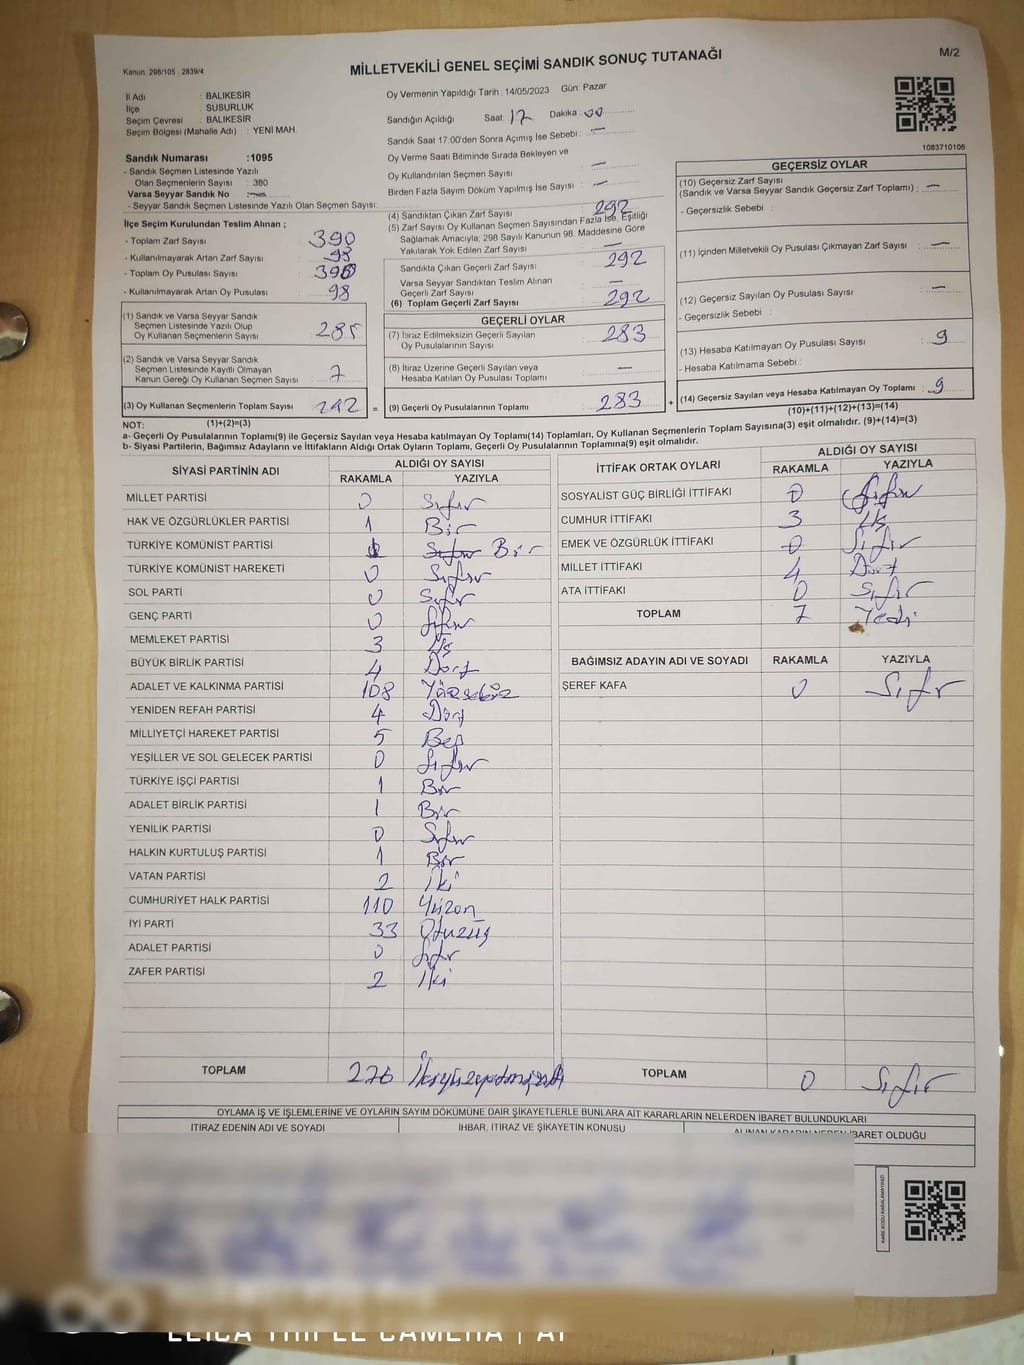 Kanun: 298/105 , 2839/4
MİLLETVEKİLİ GENEL SEÇİMİ SANDIK SONUÇ TUTANAĞI
M/2
İl Adı : BALIKESİR
İlçe : SUSURLUK
Seçim Çevresi : BALIKESİR
Seçim Bölgesi (Mahalle Adı) : YENİ MAH.
Oy Vermenin Yapıldığı Tarih : 14/05/2023 Gün: Pazar
Sandığın Açıldığı Saat: 17 Dakika: 00
Sandık Saat 17:00'den Sonra Açımış İse Sebebi : —
Oy Verme Saati Bitiminde Sırada Bekleyen ve
Oy Kullandırılan Seçmen Sayısı —
Birden Fazla Sayım Döküm Yapılmış İse Sayısı : —
1083710106
Sandık Numarası :1095
- Sandık Seçmen Listesinde Yazılı
Olan Seçmenlerin Sayısı : 380
Varsa Seyyar Sandık No —
- Seyyar Sandık Seçmen Listesinde Yazılı Olan Seçmen Sayısı:
İlçe Seçim Kurulundan Teslim Alınan ;
- Toplam Zarf Sayısı 390
- Kullanılmayarak Artan Zarf Sayısı : 98
- Toplam Oy Pusulası Sayısı 390
- Kullanılmayarak Artan Oy Pusulası : 98
(1) Sandık ve Varsa Seyyar Sandık
Seçmen Listesinde Yazılı Olup
Oy Kullanan Seçmenlerin Sayısı : 285
(2) Sandık ve Varsa Seyyar Sandık
Seçmen Listesinde Kayıtlı Olmayan
Kanun Gereği Oy Kullanan Seçmen Sayısı : 7
(3) Oy Kullanan Seçmenlerin Toplam Sayısı 292
(1)+(2)=(3)
(4) Sandıktan Çıkan Zarf Sayısı 292
(5) Zarf Sayısı Oy Kullanan Seçmen Sayısından Fazla İse, Eşitliği
Sağlamak Amacıyla; 298 Sayılı Kanunun 98. Maddesine Göre
Yakılarak Yok Edilen Zarf Sayısı : —
Sandıkta Çıkan Geçerli Zarf Sayısı : 292
Varsa Seyyar Sandıktan Teslim Alınan
Geçerli Zarf Sayısı : —
(6) Toplam Geçerli Zarf Sayısı : 292
GEÇERLİ OYLAR
(7) İtiraz Edilmeksizin Geçerli Sayılan
Oy Pusulalarının Sayısı : 283
(8) İtiraz Üzerine Geçerli Sayılan veya
Hesaba Katılan Oy Pusulası Toplamı : —
= (9) Geçerli Oy Pusulalarının Toplamı : 283 +
GEÇERSİZ OYLAR
(10) Geçersiz Zarf Sayısı
(Sandık ve Varsa Seyyar Sandık Geçersiz Zarf Toplamı) : —
- Geçersizlik Sebebi :
(11) İçinden Milletvekili Oy Pusulası Çıkmayan Zarf Sayısı : —
(12) Geçersiz Sayılan Oy Pusulası Sayısı : —
- Geçersizlik Sebebi :
(13) Hesaba Katılmayan Oy Pusulası Sayısı : 9
- Hesaba Katılmama Sebebi :
(14) Geçersiz Sayılan veya Hesaba Katılmayan Oy Toplamı : 9
(10)+(11)+(12)+(13)=(14)
NOT:
a- Geçerli Oy Pusulalarının Toplamı(9) ile Geçersiz Sayılan veya Hesaba katılmayan Oy Toplamı(14) Toplamları, Oy Kullanan Seçmenlerin Toplam Sayısına(3) eşit olmalıdır. (9)+(14)=(3)
b- Siyasi Partilerin, Bağımsız Adayların ve İttifakların Aldığı Ortak Oyların Toplamı, Geçerli Oy Pusulalarının Toplamına(9) eşit olmalıdır.
SİYASİ PARTİNİN ADI ALDIĞI OY SAYISI
RAKAMLA YAZIYLA
MİLLET PARTİSİ 0 Sıfır
HAK VE ÖZGÜRLÜKLER PARTİSİ 1 Bir
TÜRKİYE KOMÜNİST PARTİSİ 1 Sıfır Bir
TÜRKİYE KOMÜNİST HAREKETİ 0 Sıfır
SOL PARTİ 0 Sıfır
GENÇ PARTİ 0 Sıfır
MEMLEKET PARTİSİ 3 Üç
BÜYÜK BİRLİK PARTİSİ 4 Dört
ADALET VE KALKINMA PARTİSİ 108 Yüzsekiz
YENİDEN REFAH PARTİSİ 4 Dört
MİLLİYETÇİ HAREKET PARTİSİ 5 Beş
YEŞİLLER VE SOL GELECEK PARTİSİ 0 Sıfır
TÜRKİYE İŞÇİ PARTİSİ 1 Bir
ADALET BİRLİK PARTİSİ 1 Bir
YENİLİK PARTİSİ 0 Sıfır
HALKIN KURTULUŞ PARTİSİ 1 Bir
VATAN PARTİSİ 2 İki
CUMHURİYET HALK PARTİSİ 110 Yüzon
İYİ PARTİ 33 Otuzüç
ADALET PARTİSİ 0 Sıfır
ZAFER PARTİSİ 2 İki
TOPLAM 276 İkiyüzyetmişaltı
İTTİFAK ORTAK OYLARI ALDIĞI OY SAYISI
RAKAMLA YAZIYLA
SOSYALİST GÜÇ BİRLİĞİ İTTİFAKI 0 Sıfır
CUMHUR İTTİFAKI 3 Üç
EMEK VE ÖZGÜRLÜK İTTİFAKI 0 Sıfır
MİLLET İTTİFAKI 4 Dört
ATA İTTİFAKI 0 Sıfır
TOPLAM 7 Yedi
BAĞIMSIZ ADAYIN ADI VE SOYADI RAKAMLA YAZIYLA
ŞEREF KAFA 0 Sıfır
TOPLAM 0 Sıfır
OYLAMA İŞ VE İŞLEMLERİNE VE OYLARIN SAYIM DÖKÜMÜNE DAİR ŞİKAYETLERLE BUNLARA AİT KARARLARIN NELERDEN İBARET BULUNDUKLARI
İTİRAZ EDENİN ADI VE SOYADI İHBAR, İTİRAZ VE ŞİKAYETİN KONUSU ALINAN KARARIN NEDEN İBARET OLDUĞU
LEICA TRIPLE CAMERA | AI